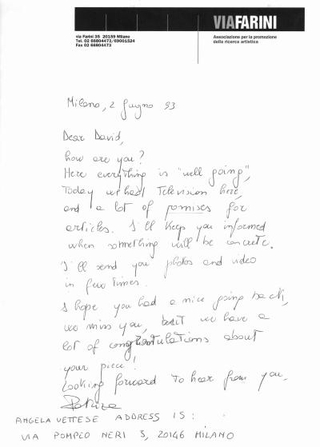 VIAFARINI
via Farini 35 20159 Milano
Tel. 02 66804473/69001524
Fax 02 66804473
Associazione per la promozione
della ricerca artistica
Milano, 2 Giugno 93
Dear David,
how are you?
Here everything is "well going",
Today we had Television here
and a lot of promises for
articles. I'll keep you informed
when something will be concrete.
I'll send you photos and video
in few times.
I hope you had a nice going back,
we miss you, but we have a
lot of congratulations about
your piece!
Looking forward to hear from you,
ANGELA VETTESE ADDRESS IS:
VIA POMPEO NERI 5, 20146 MILANO